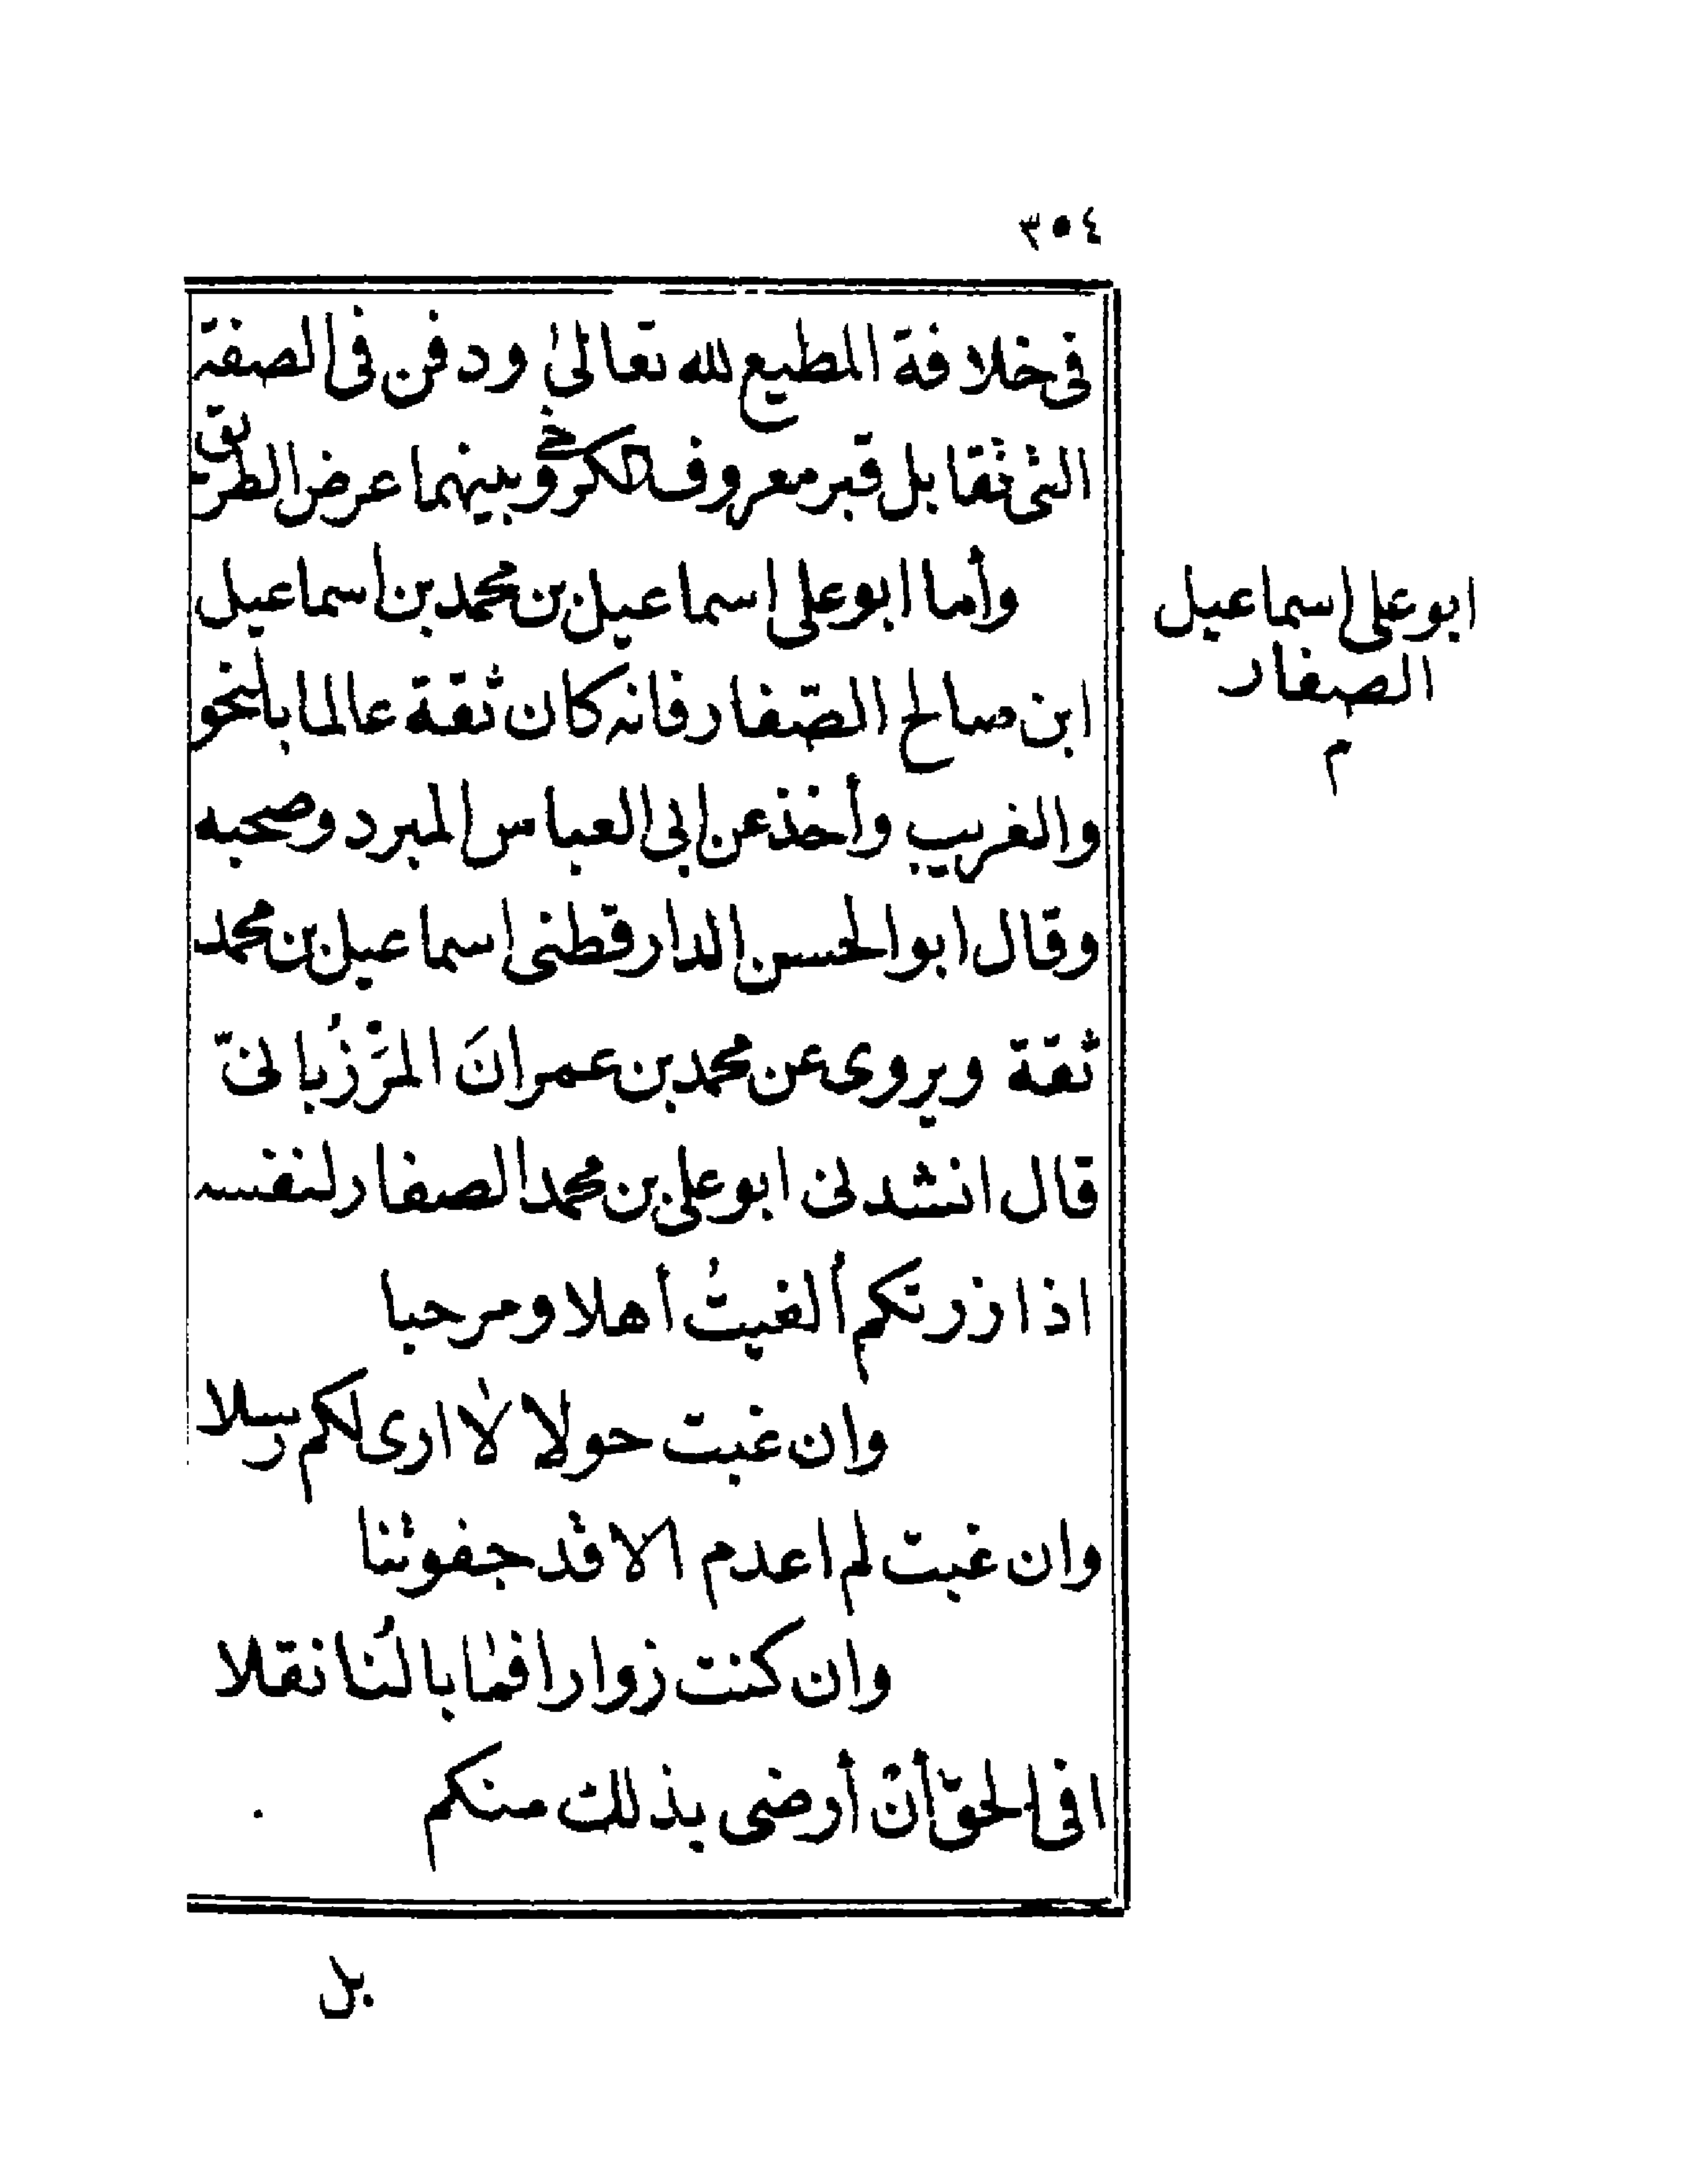 ٣٥٤
فى خلافة المطيع لله تعالىٰ ودفن فى الصفة
التى تقابل قبر معروف الكرخى وبينهما عرض الطريق
وأما ابو على اسماعيل بن محمد بن اسماعيل
ابو على اسماعيل
الصفار
م
ابن صالح الصّفار فانه كان ثقة عالما بالنحو
والغريب وأخذ عن ابى العباس المبرد وصحبه
وقال ابو الحسن الدارقطنى اسماعيل بن محمد
ثقة ويروى عن محمد بن عمرانَ المَرْزُبانىّ
قال انشدنى ابو على بن محمد الصفار لنفسه
اذا زرتكم ألفيتُ أهلا ومرحبا
وان غبت حولا لا ارى لكم رسلا
وان غبت لم اعدم الا قد جفوتنا
وان كنت زوارا فما بالُنا نقلا
افى الحقّ أنْ أرضى بذلك منكم
بل